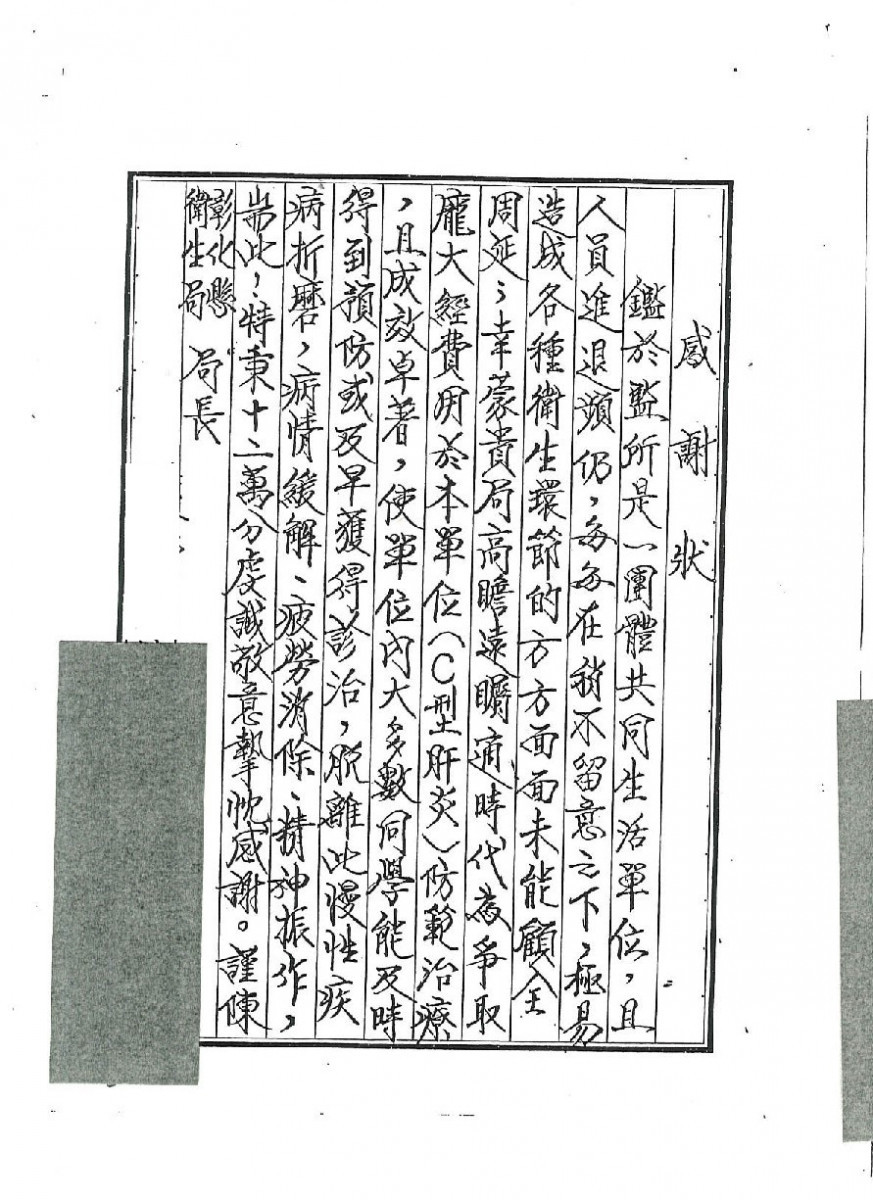 感謝狀
鑑於監所是一團體共同生活單位，且
人員進退頻仍，每每在稍不留意之下，極易
造成各種衛生環節的方方面面未能顧全
周延；幸蒙貴局高瞻遠矚適時代為爭取
龐大經費用於本單位（C型肝炎）防範治療
，且成效卓著，使單位內大多數同學能及時
得到預防或及早獲得診治，脫離此慢性疾
病折磨，病情緩解、疲勞消除、精神振作，
耑此，特秉十二萬分虔誠敬意摯忱感謝。謹陳
彰化縣
衛生局 局長